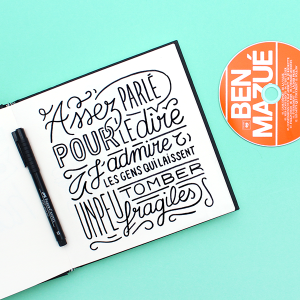 Assez PARLÉ
POUR LE dire
J'admire
LES GENS QUI LAISSENT
TOMBER
UN PEU fragiles
BEN
MAZUÉ